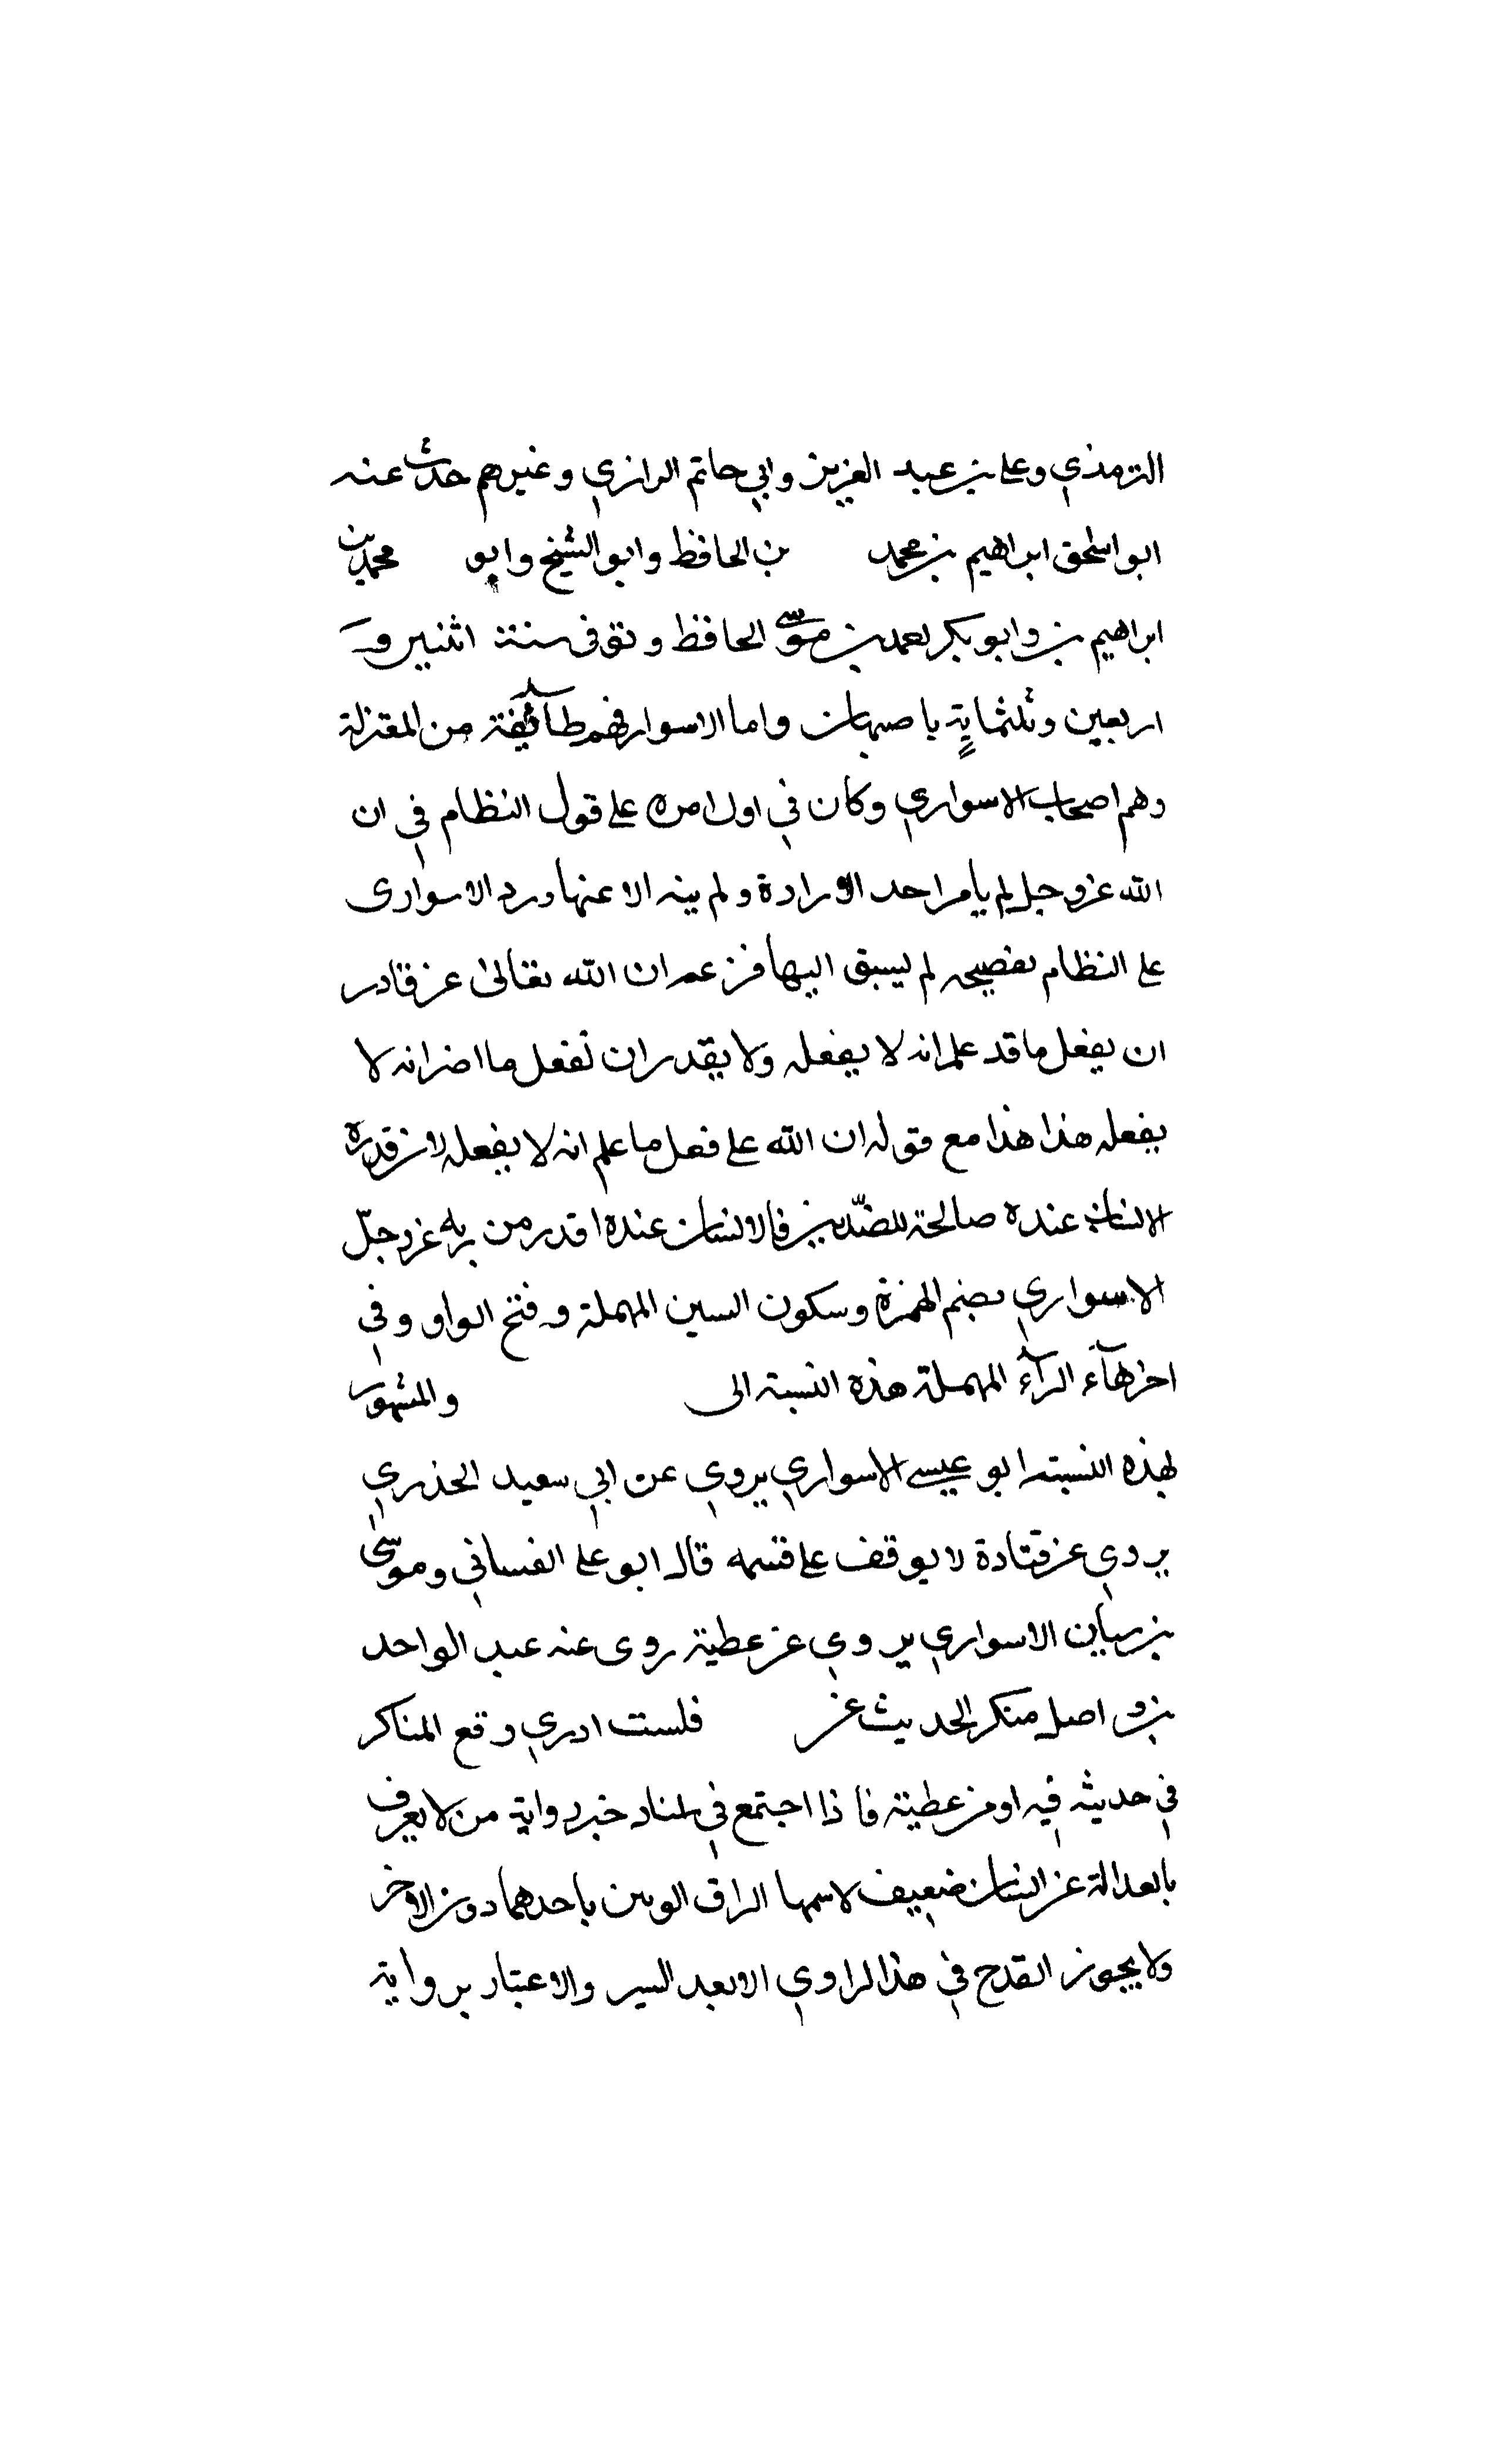 الترمذي وعلى بن عبد العزيز وابي حاتم الرازي وغيرهم حدث عنه
ابو اسحق ابراهيم بن محمد بن الحافظ وابو الشيخ وابو محمد بن
ابراهيم بن وابو بكر احمد بن موسى الحافظ وتوفى سنة اثنين و
اربعين وثلثماية باصبهان واما الاسوار فهم طآئفة من المعتزلة
وهم اصحاب الاسواري وكان في اول امره على قول النظام في ان
الله عز وجل لم يامر احد الا رادة ولم ينه الا عنها ورد الاسوارى
على النظام لم يسبق اليها فزعم ان الله تعالى عز قادر
ان يفعل ما قد علم انه لا يفعله ولا يقدر ان تفعل ما اضرانه لا
يفعله هذا هذا مع قوله ان الله على فعل ما علم انه لا يفعله لان قدرة
الانسان عنده صالحة للضّدين فالانسان عنده اقدر من ربه عز وجلّ
الاسواري بضم الهمزة وسكون السين المهملة وفتح الواو وفي
اخرهآء الرآء المهملة هذه النسبة الى والمشهور
بهذه النسبته ابو عيسى الاسواري يروي عن ابي سعيد الخذري
يروي عن قتادة لا يوقف على قسمه قال ابو على الغساني وموسى
بن سيان الاسواري يروي عن عطية روى عنه عبد الواحد
بن واصل منكر الحديث عن فلست ادري وقع المناكر
في حديثه فيه او من عطية فاذا اجتمع في اسناد خبر رواية من لا يعرف
بالعدالة عن انسان ضعيف لا سمها الزاق الوهن باحدهما دون الاخر
ولا يجوز القدح في هذا الراوي الا بعد السير والاعتبار برواية